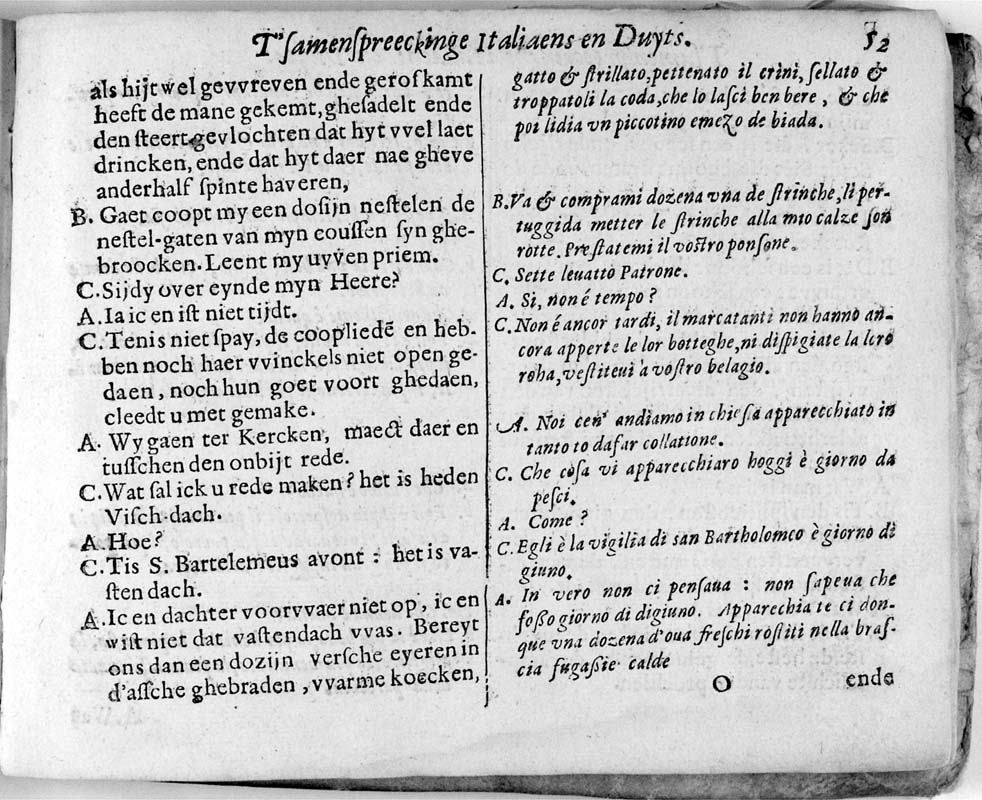 T'samenspreeckinge Italiaens en Duyts. 52
als hijt wel gevvreven ende gerofkamt
heeft de mane gekemt, ghesadelt ende
den steert gevlochten dat hyt vvel laet
drincken, ende dat hyt daer nae gheve
anderhalf spinte haveren,
B. Gaet coopt my een dosijn nestelen de
nestel-gaten van myn coussen syn ghe-
broocken. Leent my uyven priem.
C. Sijdy over eynde myn Heere?
A. Ia ic en ist niet tijdt.
C. Tenis niet spay, de coopliedē en heb-
ben noch haer vvinckels niet open ge-
daen, noch hun goet voort ghedaen,
cleedt u met gemake.
A. Wy gaen ter Kercken, maect daer en
tusschen den onbijt rede.
C. Wat sal ick u rede maken? het is heden
Visch-dach.
A. Hoe?
C. Tis S. Bartelemeus avont : het is va-
sten dach.
A. Ic en dachter voorvvaer niet op, ic en
wist niet dat vastendach vvas. Bereyt
ons dan een dozijn versche eyeren in
d'assche ghebraden, vvarme koecken,
gatto & strillato, pettenato il crini, sellato &
troppatoli la coda, che lo lasci ben bere, & che
poi lidia vn piccotino emezo de biada.
B. Va & comprami dozena vna de strinche, li per-
tuggida metter le strinche alla mio calze son
rotte. Prestatemi il vostro ponsone.
C. Sette leuatto Patrone.
A. Si, non é tempo?
C. Non é ancor tardi, il marcatanti non hanno an-
cora apperte le lor botteghe, ni dispigiate la lcro
roha, vestiteui à vostro belagio.
A. Noi cen' andiamo in chiesa apparecchiato in
tanto to dafar collatione.
C. Che cosa vi apparecchiaro hoggi è giorno da
pesci.
A. Come?
C. Egli è la vigilia di san Bartholomco è giorno di
giuno.
A. In vero non ci pensaua : non sapeua che
fosso giorno di digiuno. Apparecchia te ci don-
que vna dozena d'oua freschi rostiti nella bras-
cia fugassie calde
O ende